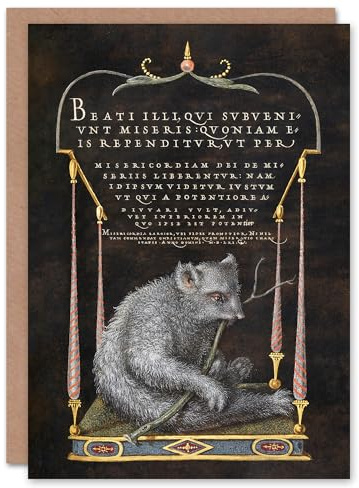 BEATI ILLI, QUI SUBVENI-
UNT MISERIS: QUONIAM E-
IS REPENDITUR, UT PER
MISERICORDIAM DEI DE MI-
SERIIS LIBERENTUR: NAM
ID IPSUM VIDETUR IUSTUM
UT QUI A POTENTIORE A
DIUVARI VULT, ADIU-
VET INFERIOREM IN
QUO IPSE EST POTENTIOR